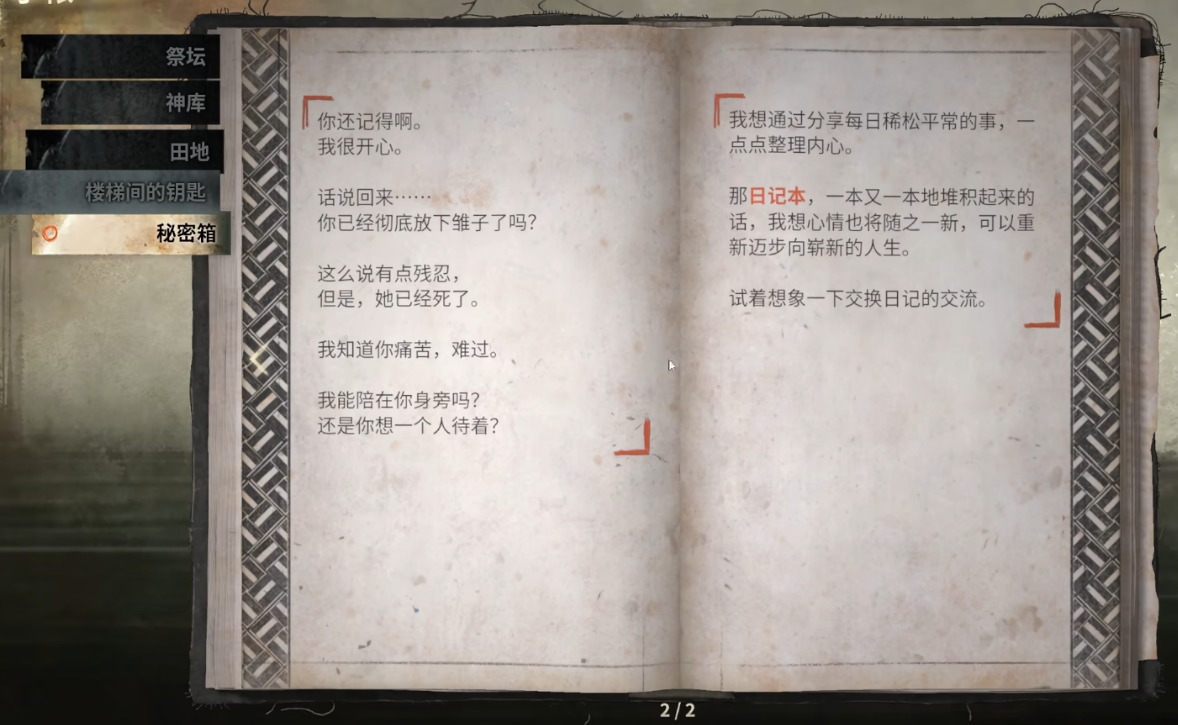 祭坛
神库
田地
楼梯间的钥匙
秘密箱
你还记得啊。
我很开心。
话说回来……
你已经彻底放下雏子了吗?
这么说有点残忍，
但是，她已经死了。
我知道你痛苦，难过。
我能陪在你身旁吗?
还是你想一个人待着?
我想通过分享每日稀松平常的事，一
点点整理内心。
那日记本，一本又一本地堆积起来的
话，我想心情也将随之一新，可以重
新迈步向崭新的人生。
试着想象一下交换日记的交流。
2/2